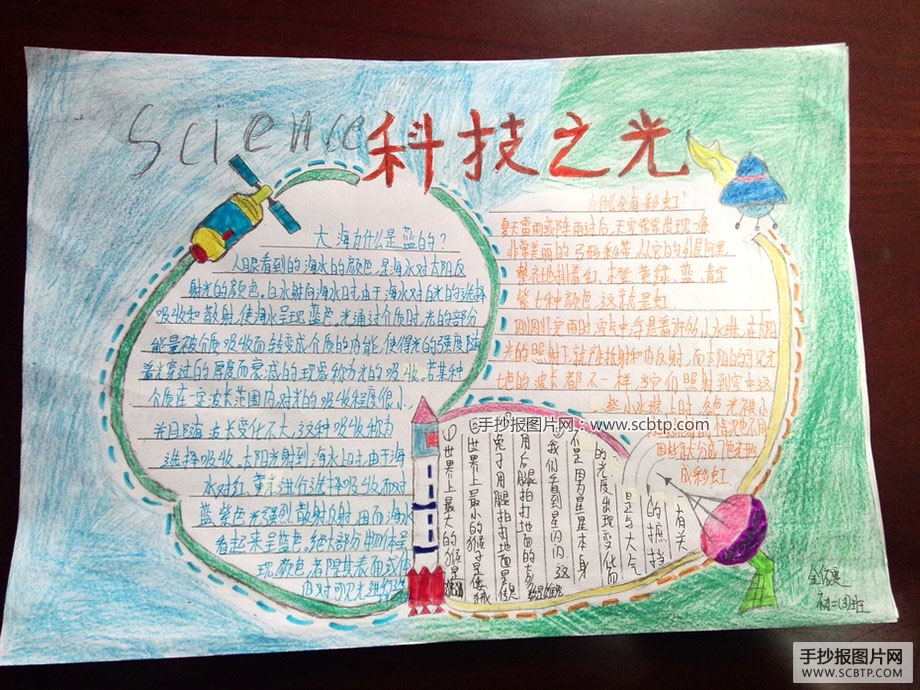 Science 科技之光
大海为什么是蓝的?
人眼看到的海水的颜色,是海水对太阳反
射光的颜色。白水射向海水时,由于海水对白光的选择
吸收和散射,使海水呈现蓝色。光通过介质时光的部分
能量被介质吸收而转变成介质的内能,使得光的强度随
着光穿过的厚度而衰减的现象称为光的吸收。若某种
介质在一定波长范围内对光的吸收程度很小
并且随波长变化不大,这种吸收称为
选择吸收。太阳光射到海水上时,由于海
水对红、黄光进行选择吸收而对
蓝、紫色光强烈散射反射,因而海水
看起来呈蓝色。绝大部分物体呈
现颜色,都是其表面或体
内对可见光进行选
会有彩虹?
夏天雷雨或阵雨过后,天空常常出现一条
非常美丽的弓形彩带,从它的外层向里
整齐地排着红、橙、黄、绿、蓝、靛
紫七种颜色,这就是虹。
刚刚下完雨时,空气中浮悬着许多小水珠,在太阳
光的照射下就产生折射和内反射,而太阳的可见光
的波长都不一样,当它们照射到空中这
些小水珠上时,各色光被小
情况也不同
成彩虹
①世界上最大的猴是
世界上最小的猴子是倭狨
兔子用腿拍打地面是
用后腿拍打地面的
我们看到星闪闪,这
不是因为星星本身
的光度出现变化,而
是与大气
的遮挡
有关
手抄报图片网:www.scbtp.com
初二(3)班
手抄报图片网
SCBTP.COM